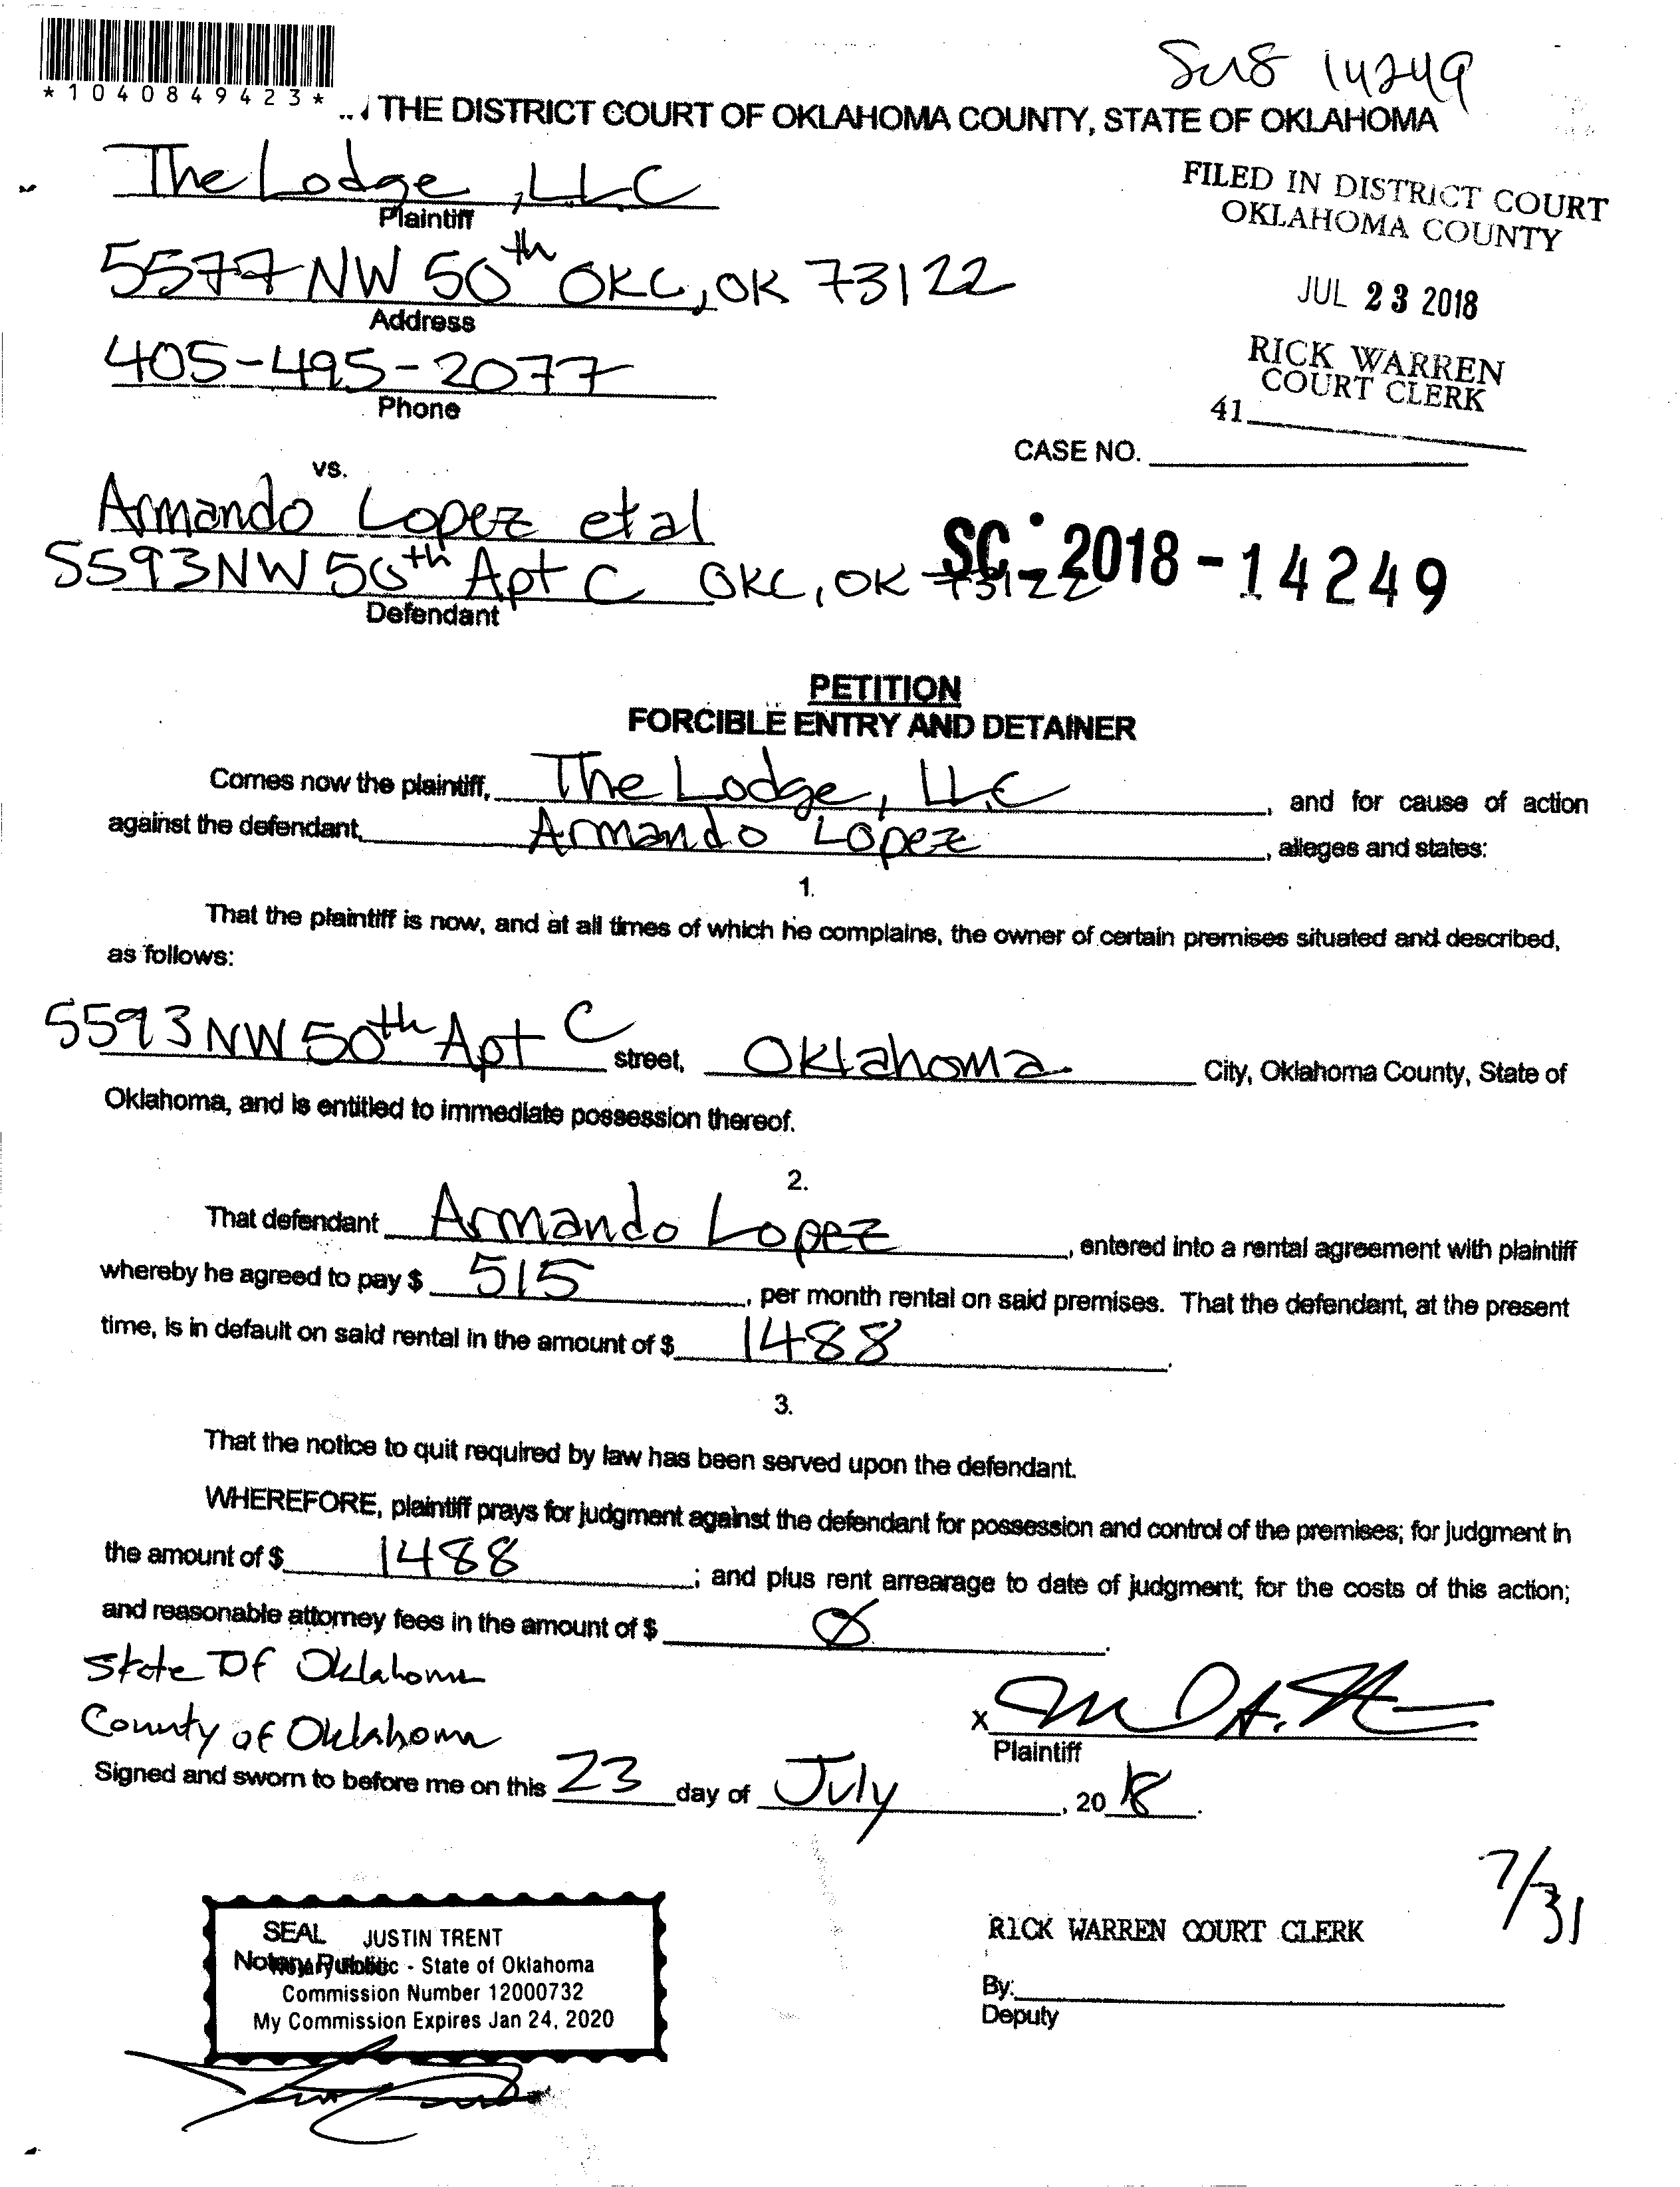 *1040849423*
14249
THE DISTRICT COURT OF OKLAHOMA COUNTY, STATE OF OKLAHOMA
The Lodge, LLC
Plaintiff
FILED IN DISTRICT COURT
OKLAHOMA COUNTY
5577 NW 50th OKC, OK 73122
Address
JUL 23 2018
405-495-2077
Phone
RICK WARREN
COURT CLERK
41
CASE NO.
vs.
Armando Lopez et al
5593 NW 50th Apt C OKC, OK 73122
Defendant
SC-2018-14249
PETITION
FORCIBLE ENTRY AND DETAINER
Comes now the plaintiff, The Lodge, LLC, and for cause of action
against the defendant, Armando Lopez, alleges and states:
1.
That the plaintiff is now, and at all times of which he complains, the owner of certain premises situated and described,
as follows:
5593 NW 50th Apt C street, Oklahoma City, Oklahoma County, State of
Oklahoma, and is entitled to immediate possession thereof.
2.
That defendant Armando Lopez, entered into a rental agreement with plaintiff
whereby he agreed to pay $ 515, per month rental on said premises. That the defendant, at the present
time, is in default on said rental in the amount of $ 1488.
3.
That the notice to quit required by law has been served upon the defendant.
WHEREFORE, plaintiff prays for judgment against the defendant for possession and control of the premises; for judgment in
the amount of $ 1488; and plus rent arrearage to date of judgment; for the costs of this action;
and reasonable attorney fees in the amount of $ Ø.
State Of Oklahoma
County of Oklahoma
X
Plaintiff
Signed and sworn to before me on this 23 day of July, 2018.
7/31
SEAL JUSTIN TRENT
Notary Public - State of Oklahoma
Commission Number 12000732
My Commission Expires Jan 24, 2020
RICK WARREN COURT CLERK
By:
Deputy